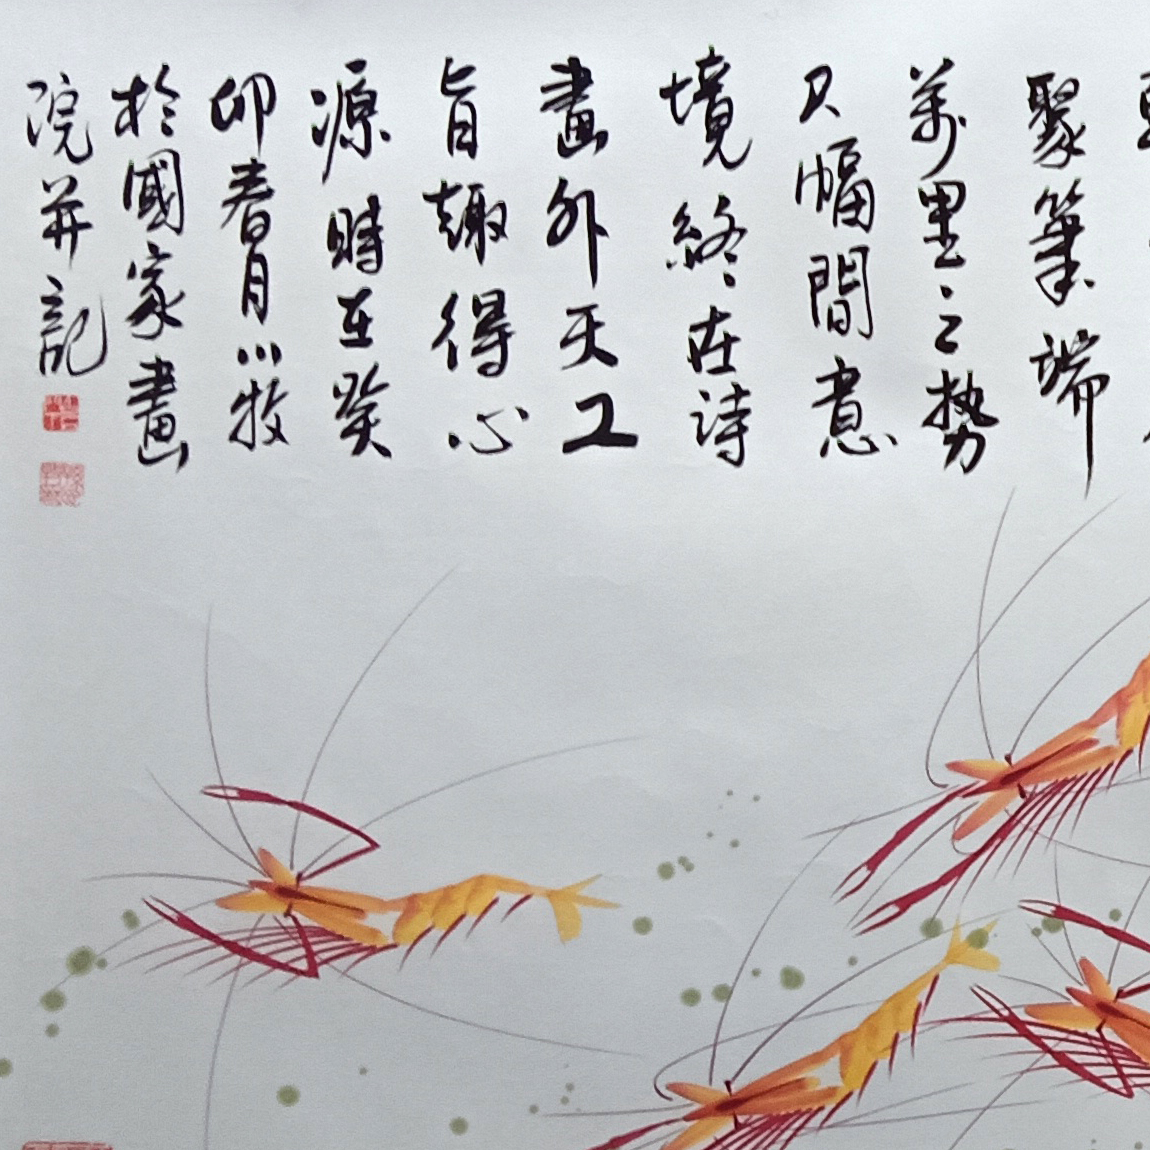 聚筆端
萬里之勢
尺幅間意
境終在詩
畫外天工
旨趣得心
源時在癸
卯春月小牧
於國家畫
院并記